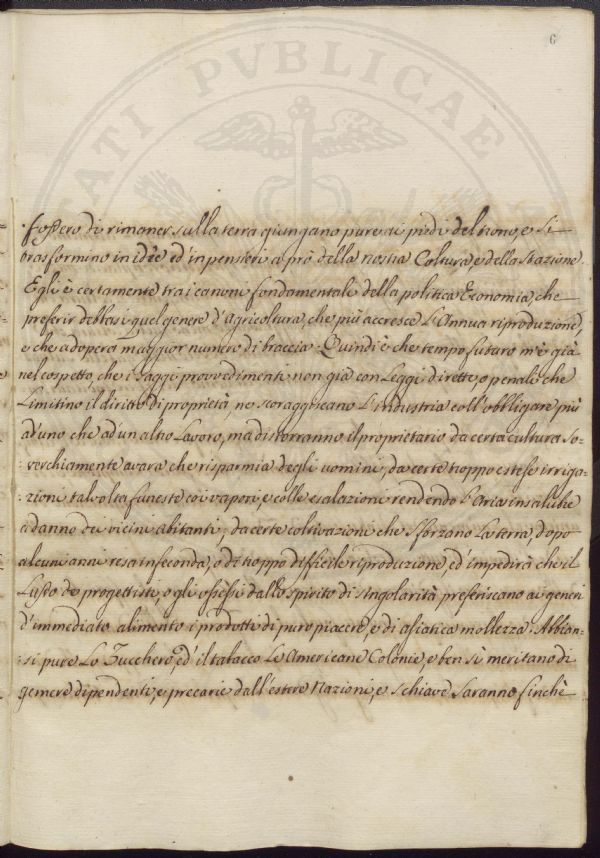 6
ATI PVBLICAE
fossero di rimaner sulla terra giungano pure ai piedi del trono, e si
trasformino in idèe ed in penseri a prò della nostra Coltura, e della Stazione
Egli è certamente tra i canoni fondamentali della politica Economia, che
preferir debbasi quel genere d'Agricoltura, che più accresca L'Annua riproduzione,
e che adopera maggior numero di braccia. Quindi è che tempo futuro m'è già
nel cospetto, che i saggi provvedimenti non già con Leggi dirette, o penali che
Limitino il diritto di proprietà, nè scoraggiscano L'industria coll'obbligare più
ad uno che ad un altro Lavoro, ma distorranno il proprietario da certa cultura so-
:verchiamente avara che risparmia degli uomini, da certe troppo estese irriga-
:zioni talvolta funeste coi vapori, e colle esalazioni rendendo l'Aria insalubre
a danno dei vicini abitanti, da certe coltivazioni che sforzano La terra, dopo
alcuni anni resa infeconda, o di troppo difficile riproduzione, ed impedirà che il
Lusso de progettisti, o gli ossessi dallo spirito di singolarità preferiscano ai generi
d'immediato alimento i prodotti di puro piacere, e di asiatica mollezza. Abbian-
:si pure Lo Zucchero, ed il tabacco Le Americane Colonie, e ben si meritano di
gemere dipendenti, e precarie dall'estere Nazioni, e schiave saranno finchè